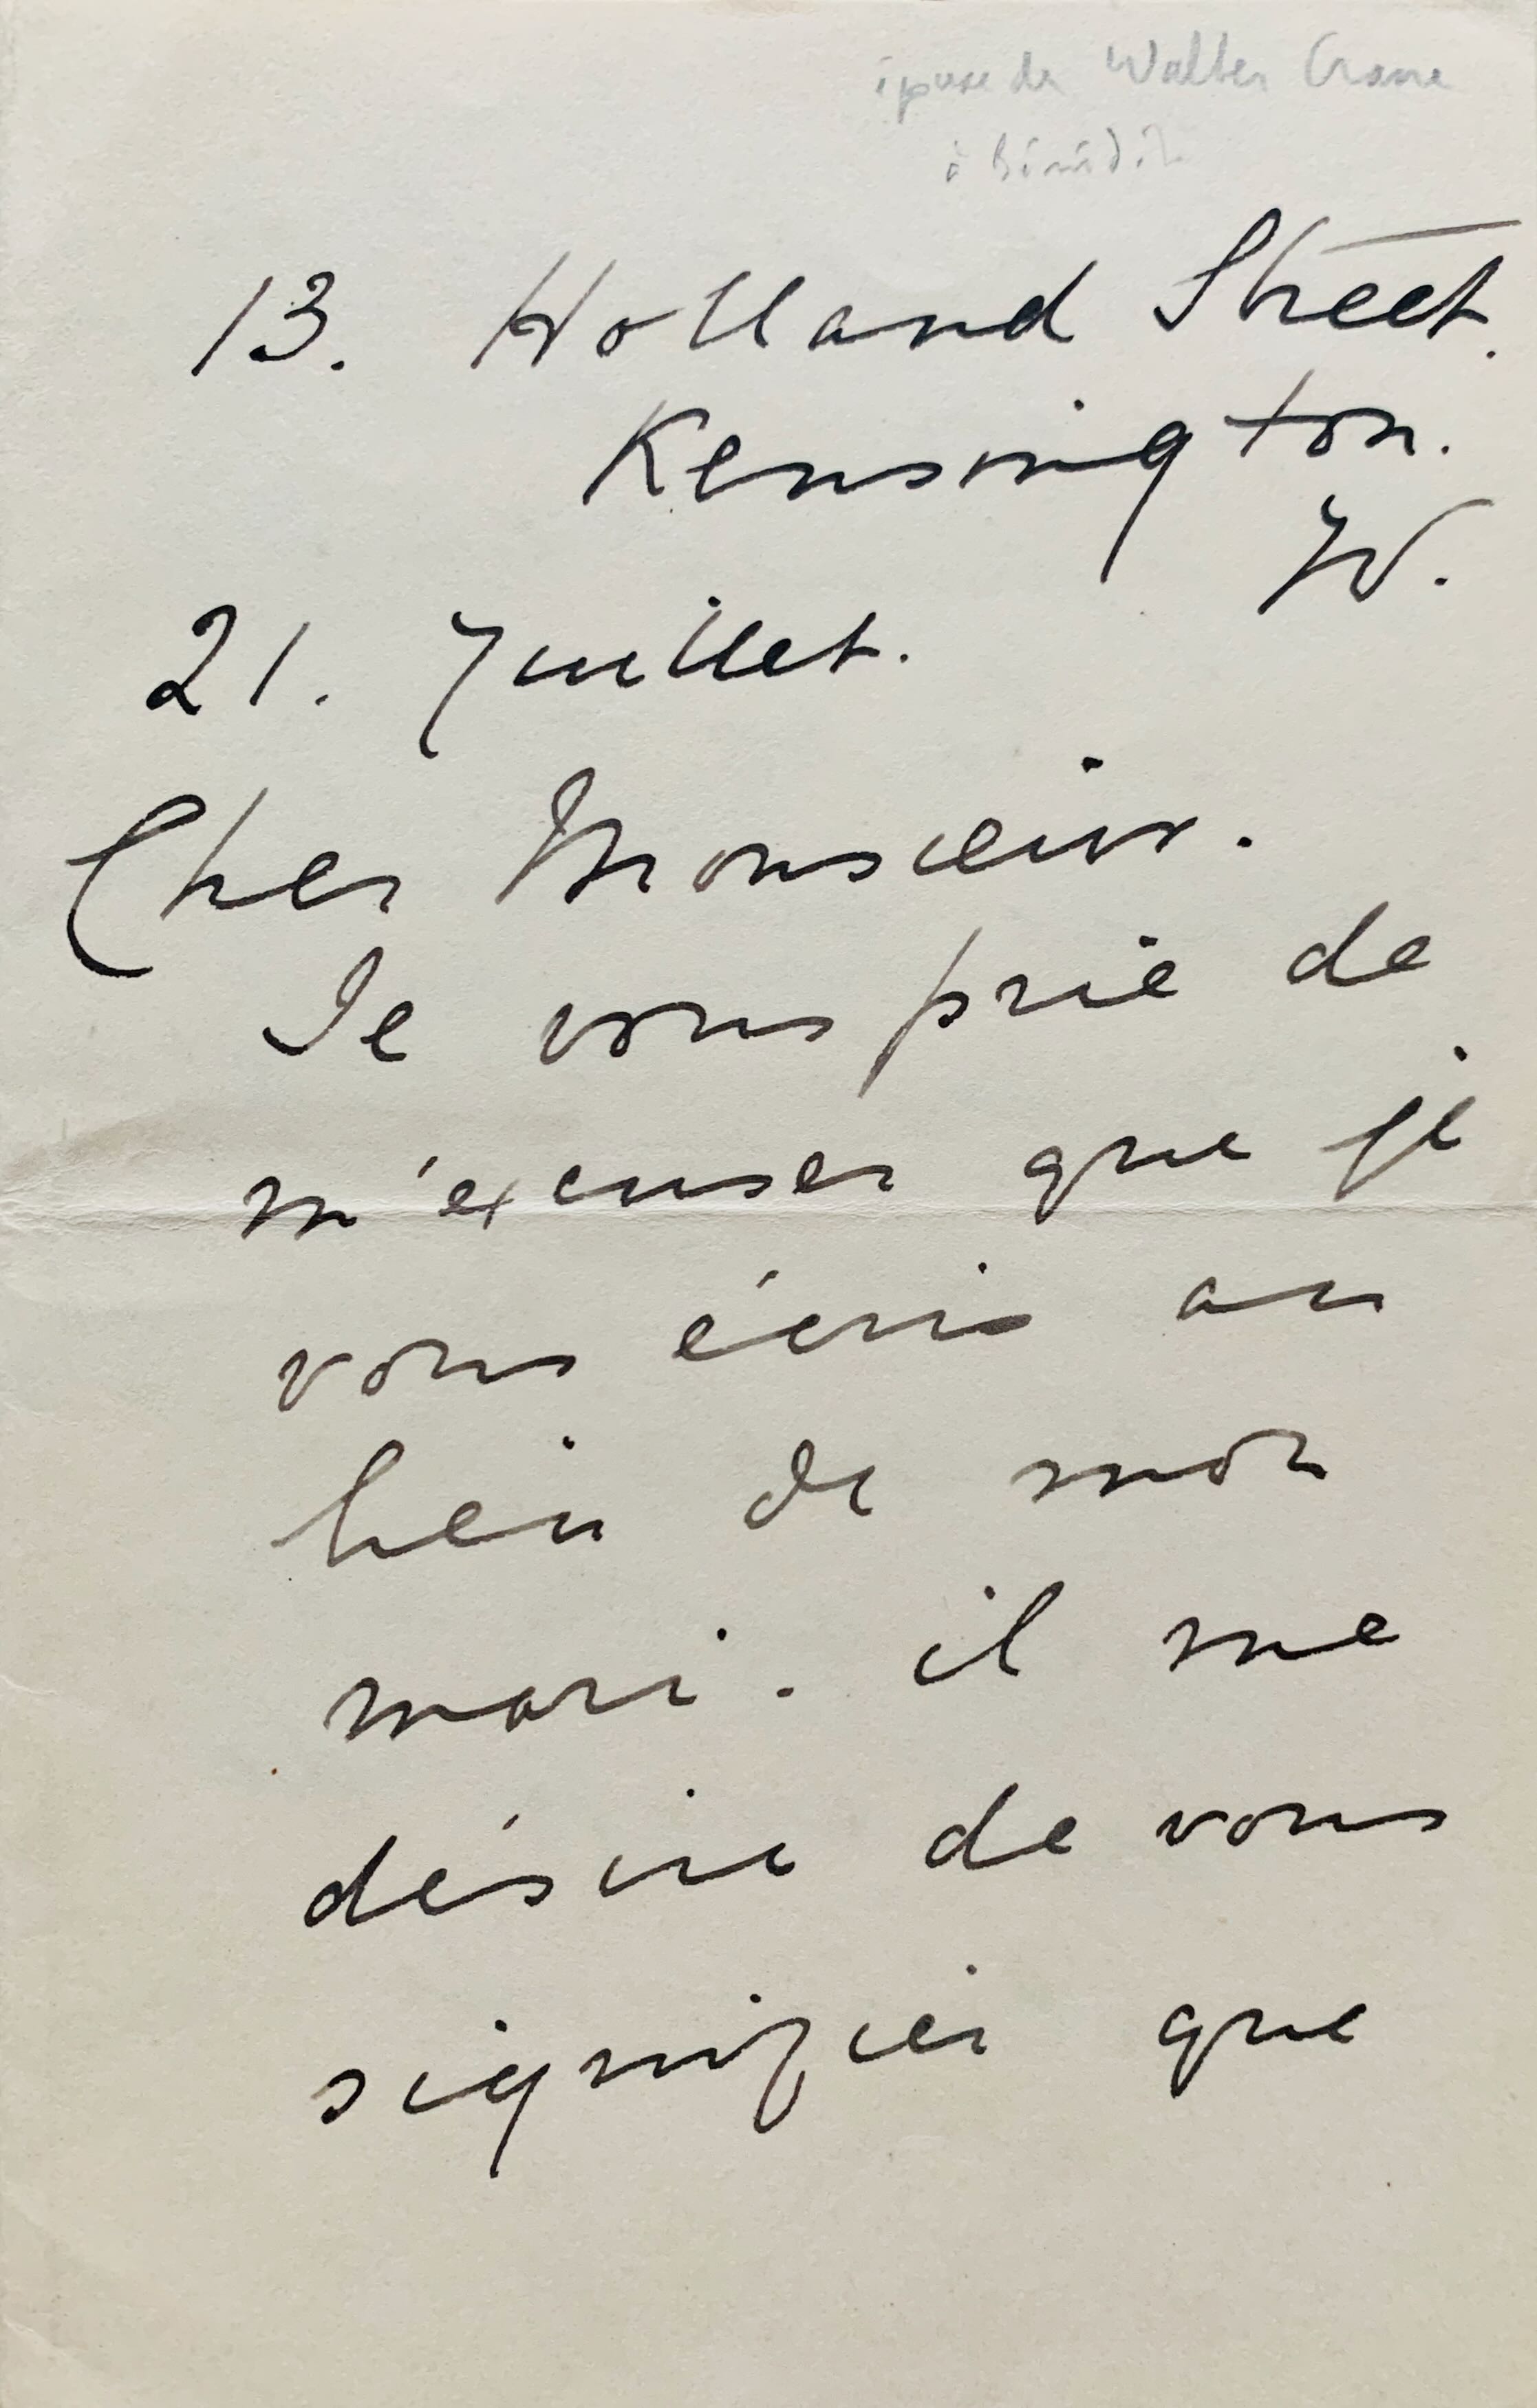 épouse de Walter Crane
à Bénédit
13. Holland Street.
Kensington.
W.
21. Juillet.
Cher Monsieur.
Je vous prie de
m'éxcuser que je
vous écris au
lieu de mon
mari. il me
désire de vous
signifier que